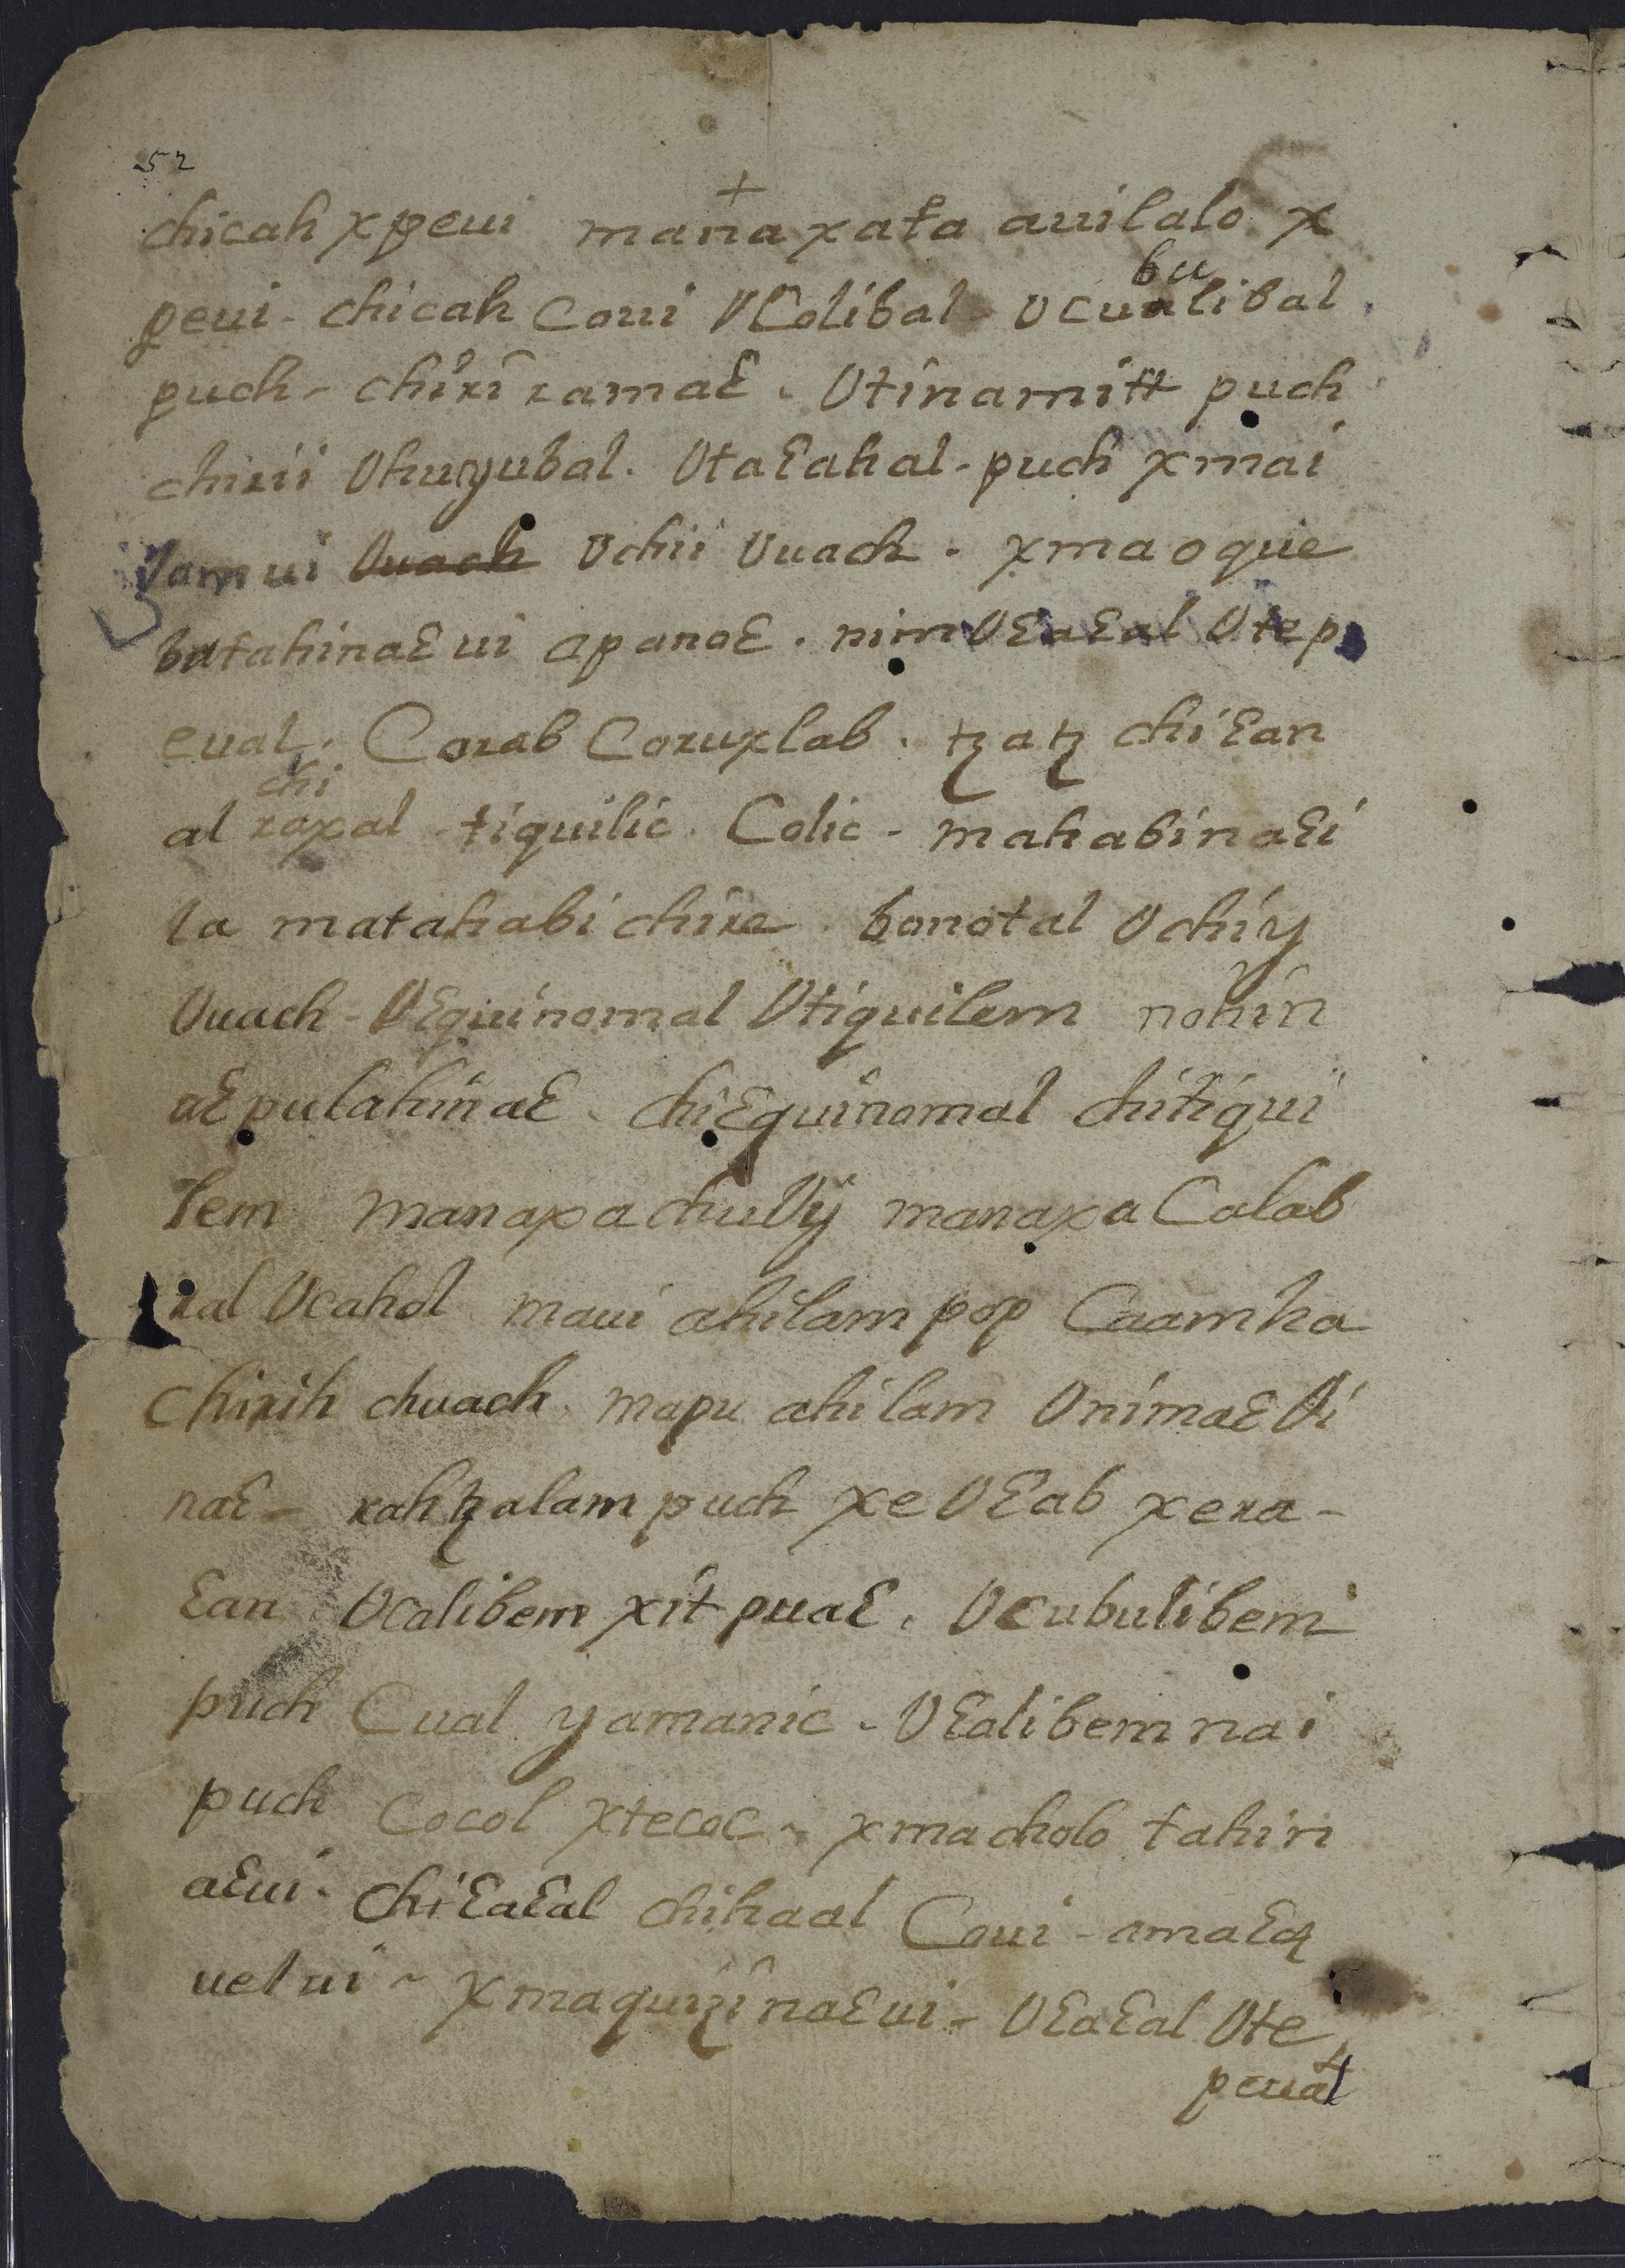 52
+
chicah xpeui mana xata auilalo x
bu
peui - chicah coui VColibal - vcualibal
puch - chiri ramaɛ . Vtinamitt puch
chirii Vhuyubal . Vtaɛahal - puch xmai
Jam ui Vuach Vchii Vuach . xmaoquie
batahinaɛ ui apanoɛ . nim Vɛaɛal Vtep
eual . Corab coruxlab . tzatz chiɛan
chi
al raxal - tiquilic . Colic - mahabi naɛi
la matahabi chire . bonotal Vchiy
Vuach - Vɛquinomal Vtiquilem nohin
aɛ pulahinaɛ . chiɛquinomal chitiqui
lem manaxa chuVij manaxa Calab
ral Vcahol maui ahilam pop Caamha
chirih chuach . mapu ahilam VnimaɛVi
naɛ - rahtzalam puch xe Vɛab xera -
ɛan . Vcalibem xit puaɛ . Vcubulibem
puch Cual yamanic - Vɛalibem nai
puch Cocol xtecoc ~ xmacholo tahin
aɛui . chiɛaɛal chihaal Coui - amaɛq
uel ui ~ xmaquizinaɛ ui - Vɛaɛal Vte
peual